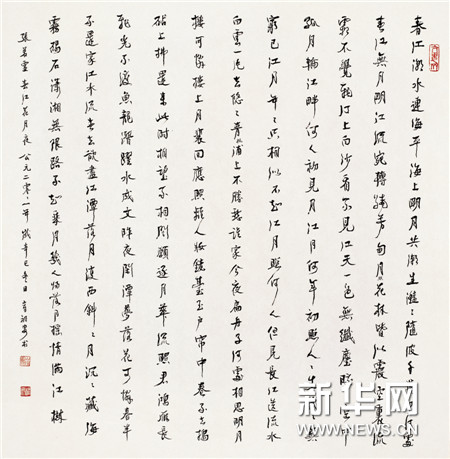 春江潮水連海平海上明月共潮生灩〻隨波千萬里何處
春江無月明江流宛轉繞芳甸月照花林皆似霰空裏流
霜不覺飛汀上白沙看不見江天一色無纖塵皎〻空中
孤月輪江畔何人初見月江月何年初照人人生代〻無
窮已江月年〻只相似不知江月照何人但見長江送流水
白雲一片去悠〻青楓浦上不勝愁誰家今夜扁舟子何處相思明月
樓可憐樓上月裴回應照離人妝鏡臺玉戶簾中卷不去搗
砧上拂還來此時相望不相聞願逐月華流照君鴻雁長
飛光不渡魚龍潛躍水成文昨夜閑潭夢落花可憐春半
不還家江水流春去欲盡江潭落月復西斜〻月沉〻藏海
霧碣石瀟湘無限路不知乘月幾人歸落月搖情滿江樹
張若虛春江花月夜 公元二零〇一年歲辛巳冬日
新华网